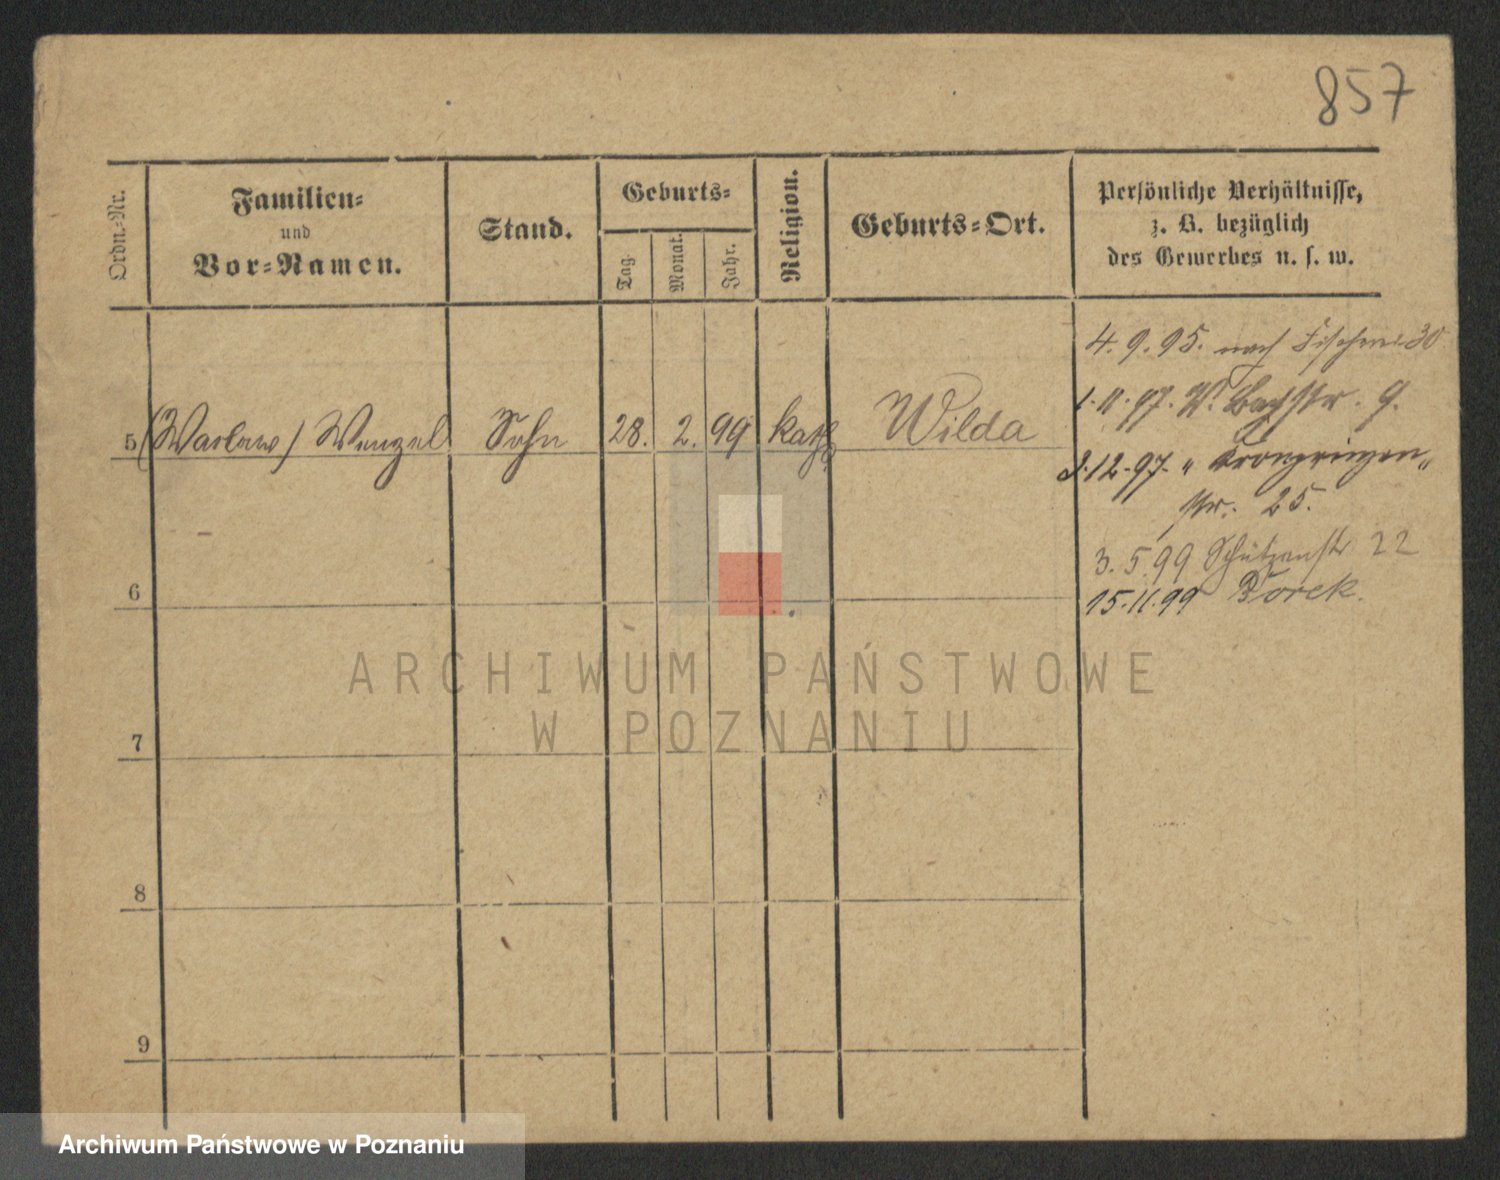 857
Ordn.-Nr.
Familien-
und
Vor-Namen.
Stand.
Geburts-
Tag.
Monat.
Jahr.
Religion.
Geburts-Ort.
Persönliche Verhältnisse,
z. B. bezüglich
des Gewerbes u. s. w.
4. 9. 95. nach Fischerei 30
1. 11. 97. W. Bachstr. 9.
5 (Waclaw) Wenzel Sohn 28. 2. 99 kath Wilda
2. 12. 97. " Kronprinzen„
str. 25.
3. 5. 99 Schützenstr 22
15. 11. 99 Torek.
6
7
8
9
ARCHIWUM PAŃSTWOWE
W POZNANIU
Archiwum Państwowe w Poznaniu